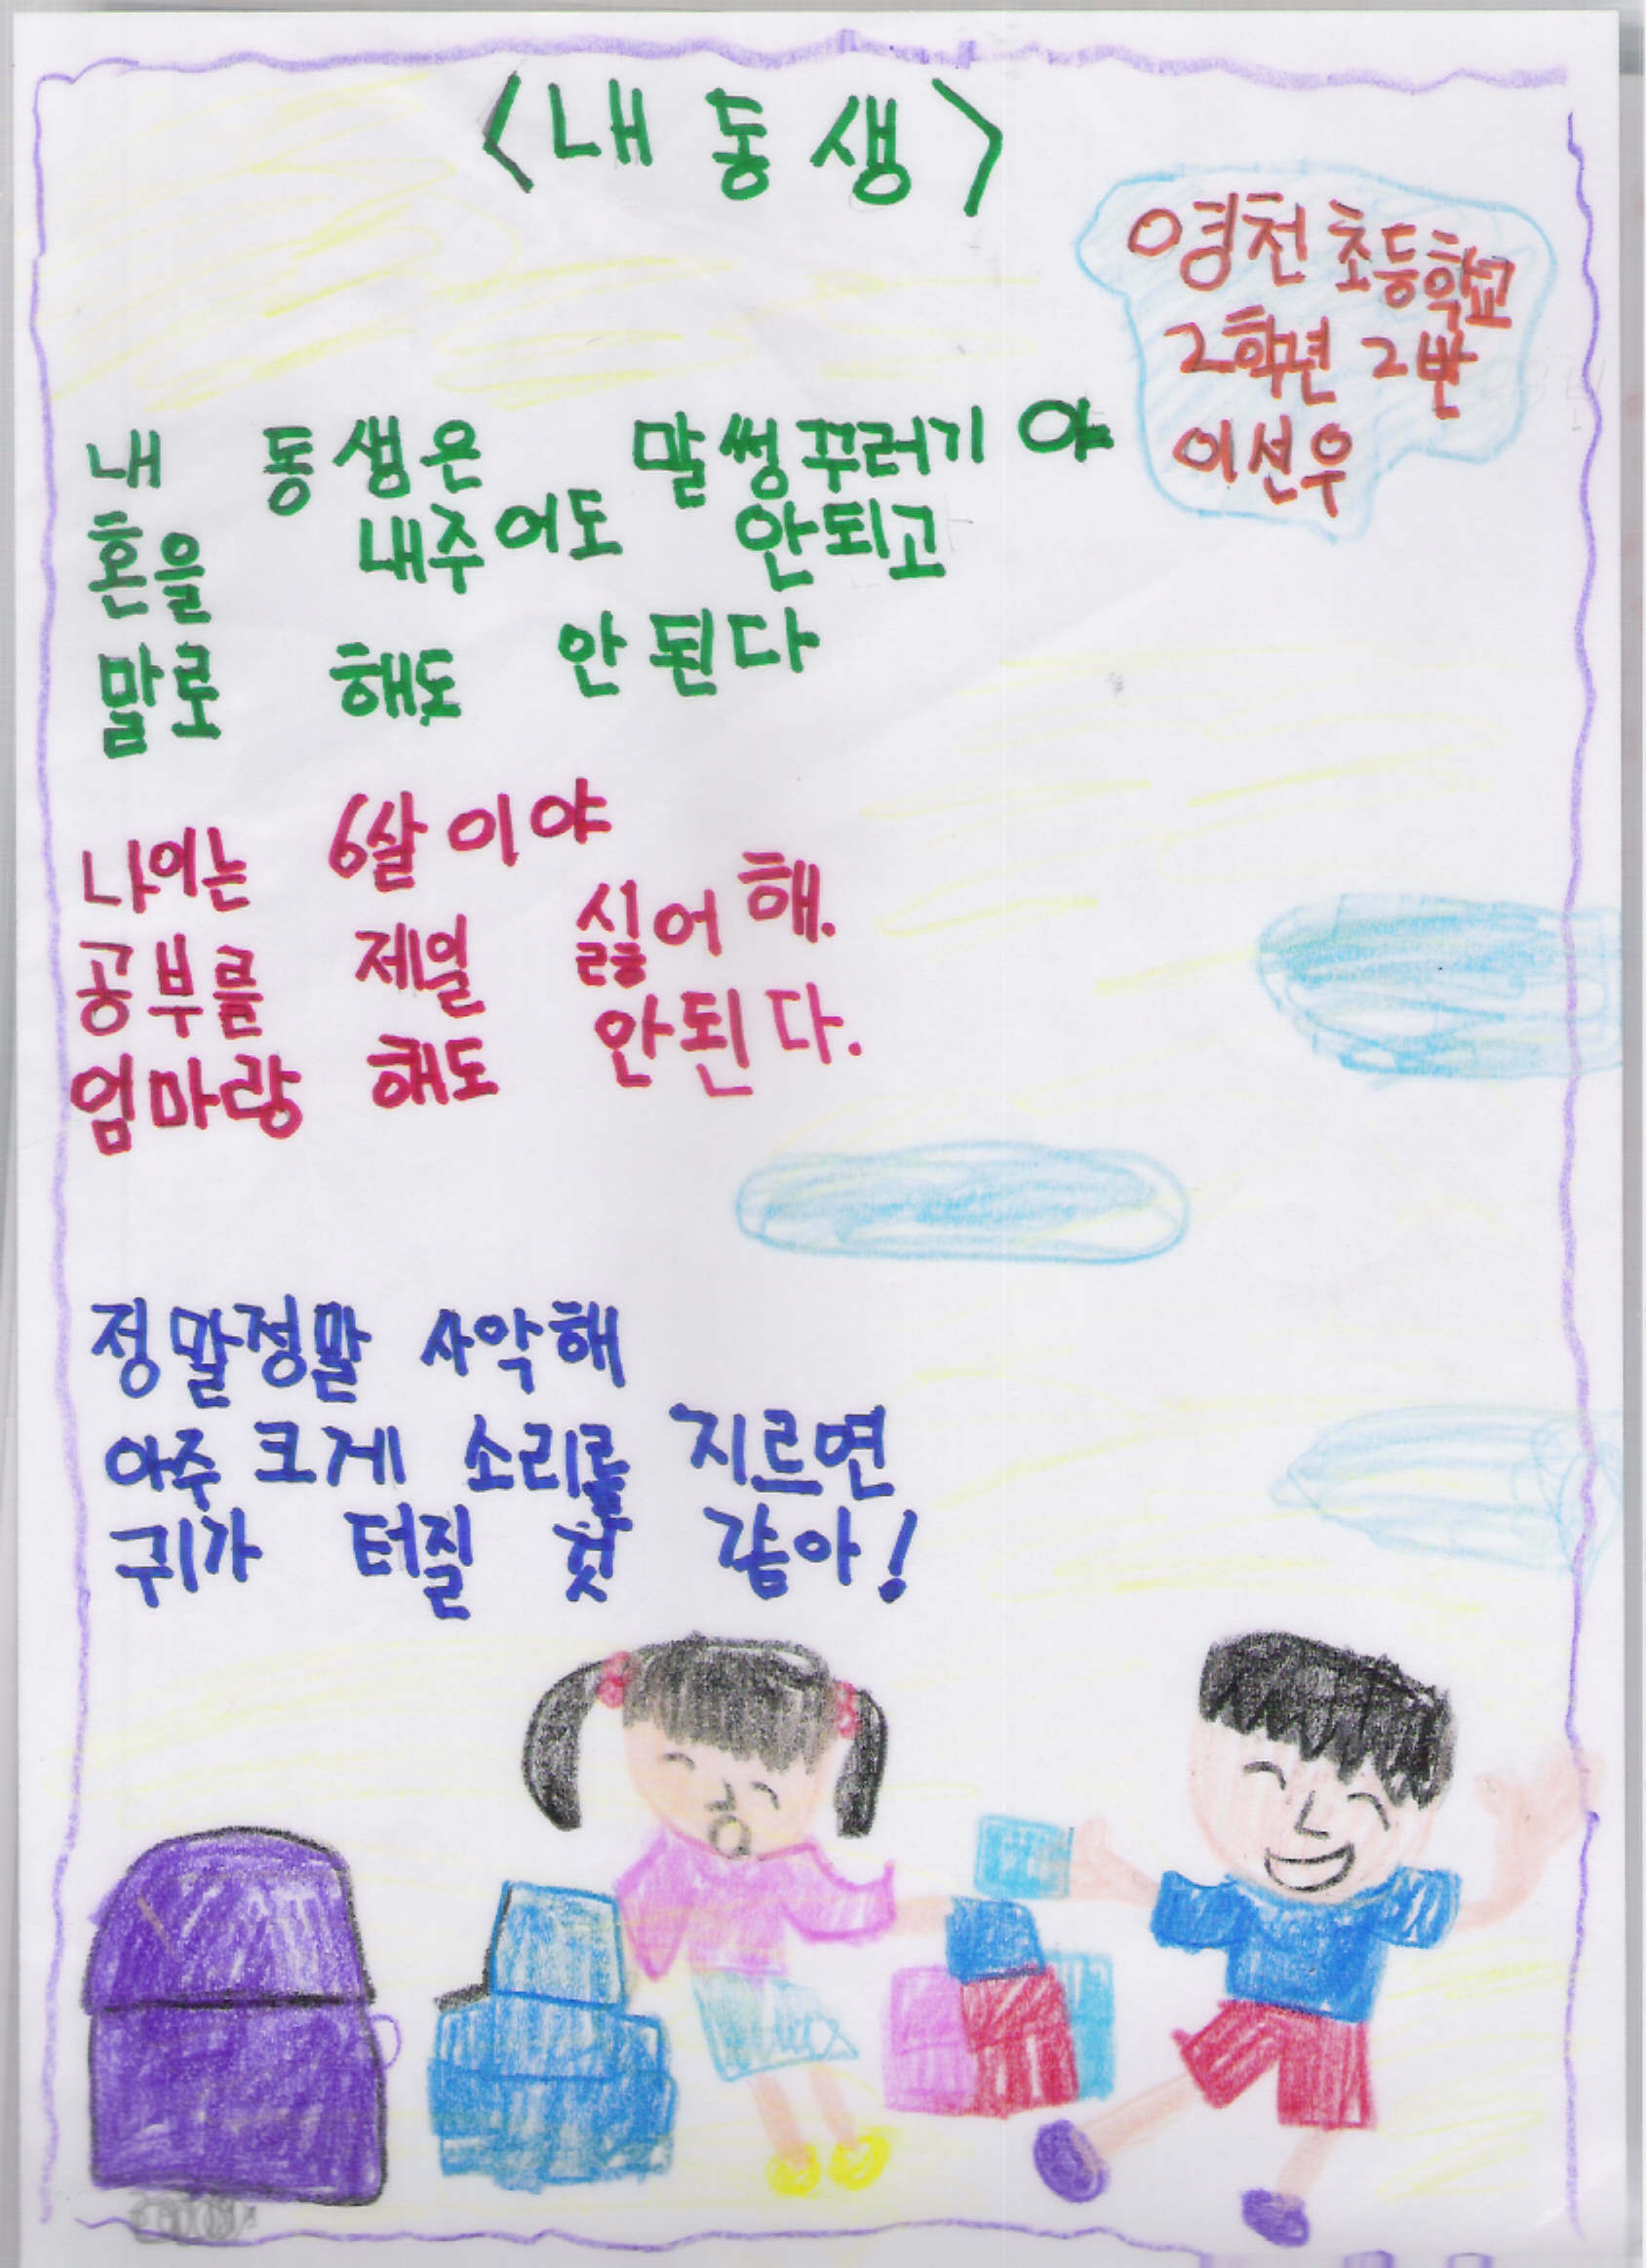 <내 동생>
영천 초등학교
2학년 2반
이선우
내 동생은 말썽꾸러기야
혼을 내주어도 안되고
말로 해도 안된다
나이는 6살이야
공부를 제일 싫어해.
엄마랑 해도 안된다.
정말정말 사악해
아주 크게 소리를 지르면
귀가 터질 것 같아!